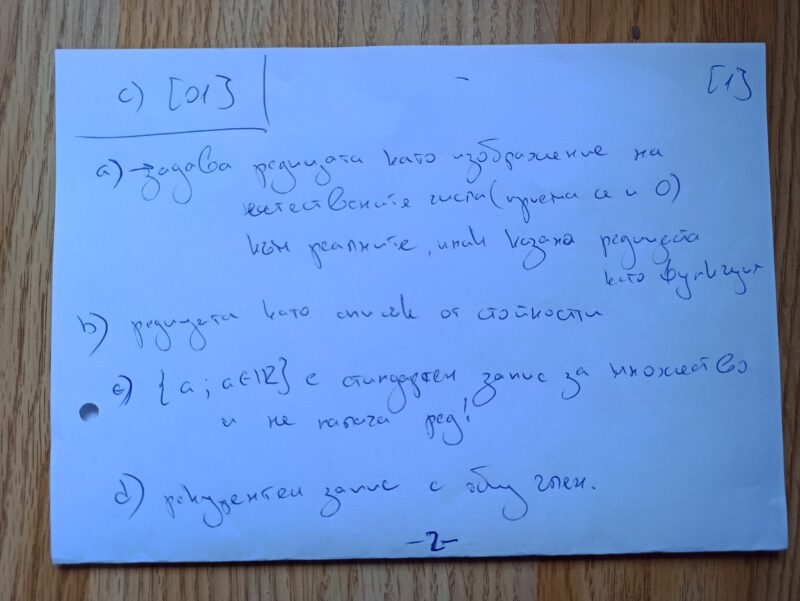 c) [01]
[1]
a) → задава редицата като изображение на
естествените числа (приема се и 0)
към реалните, инак казано редицата
като функция
b) редицата като списък от стойности
c) {a; a∈ℝ} е стандартен запис за множество
и не налага ред!
d) рекурентен запис с общ член.
-2-